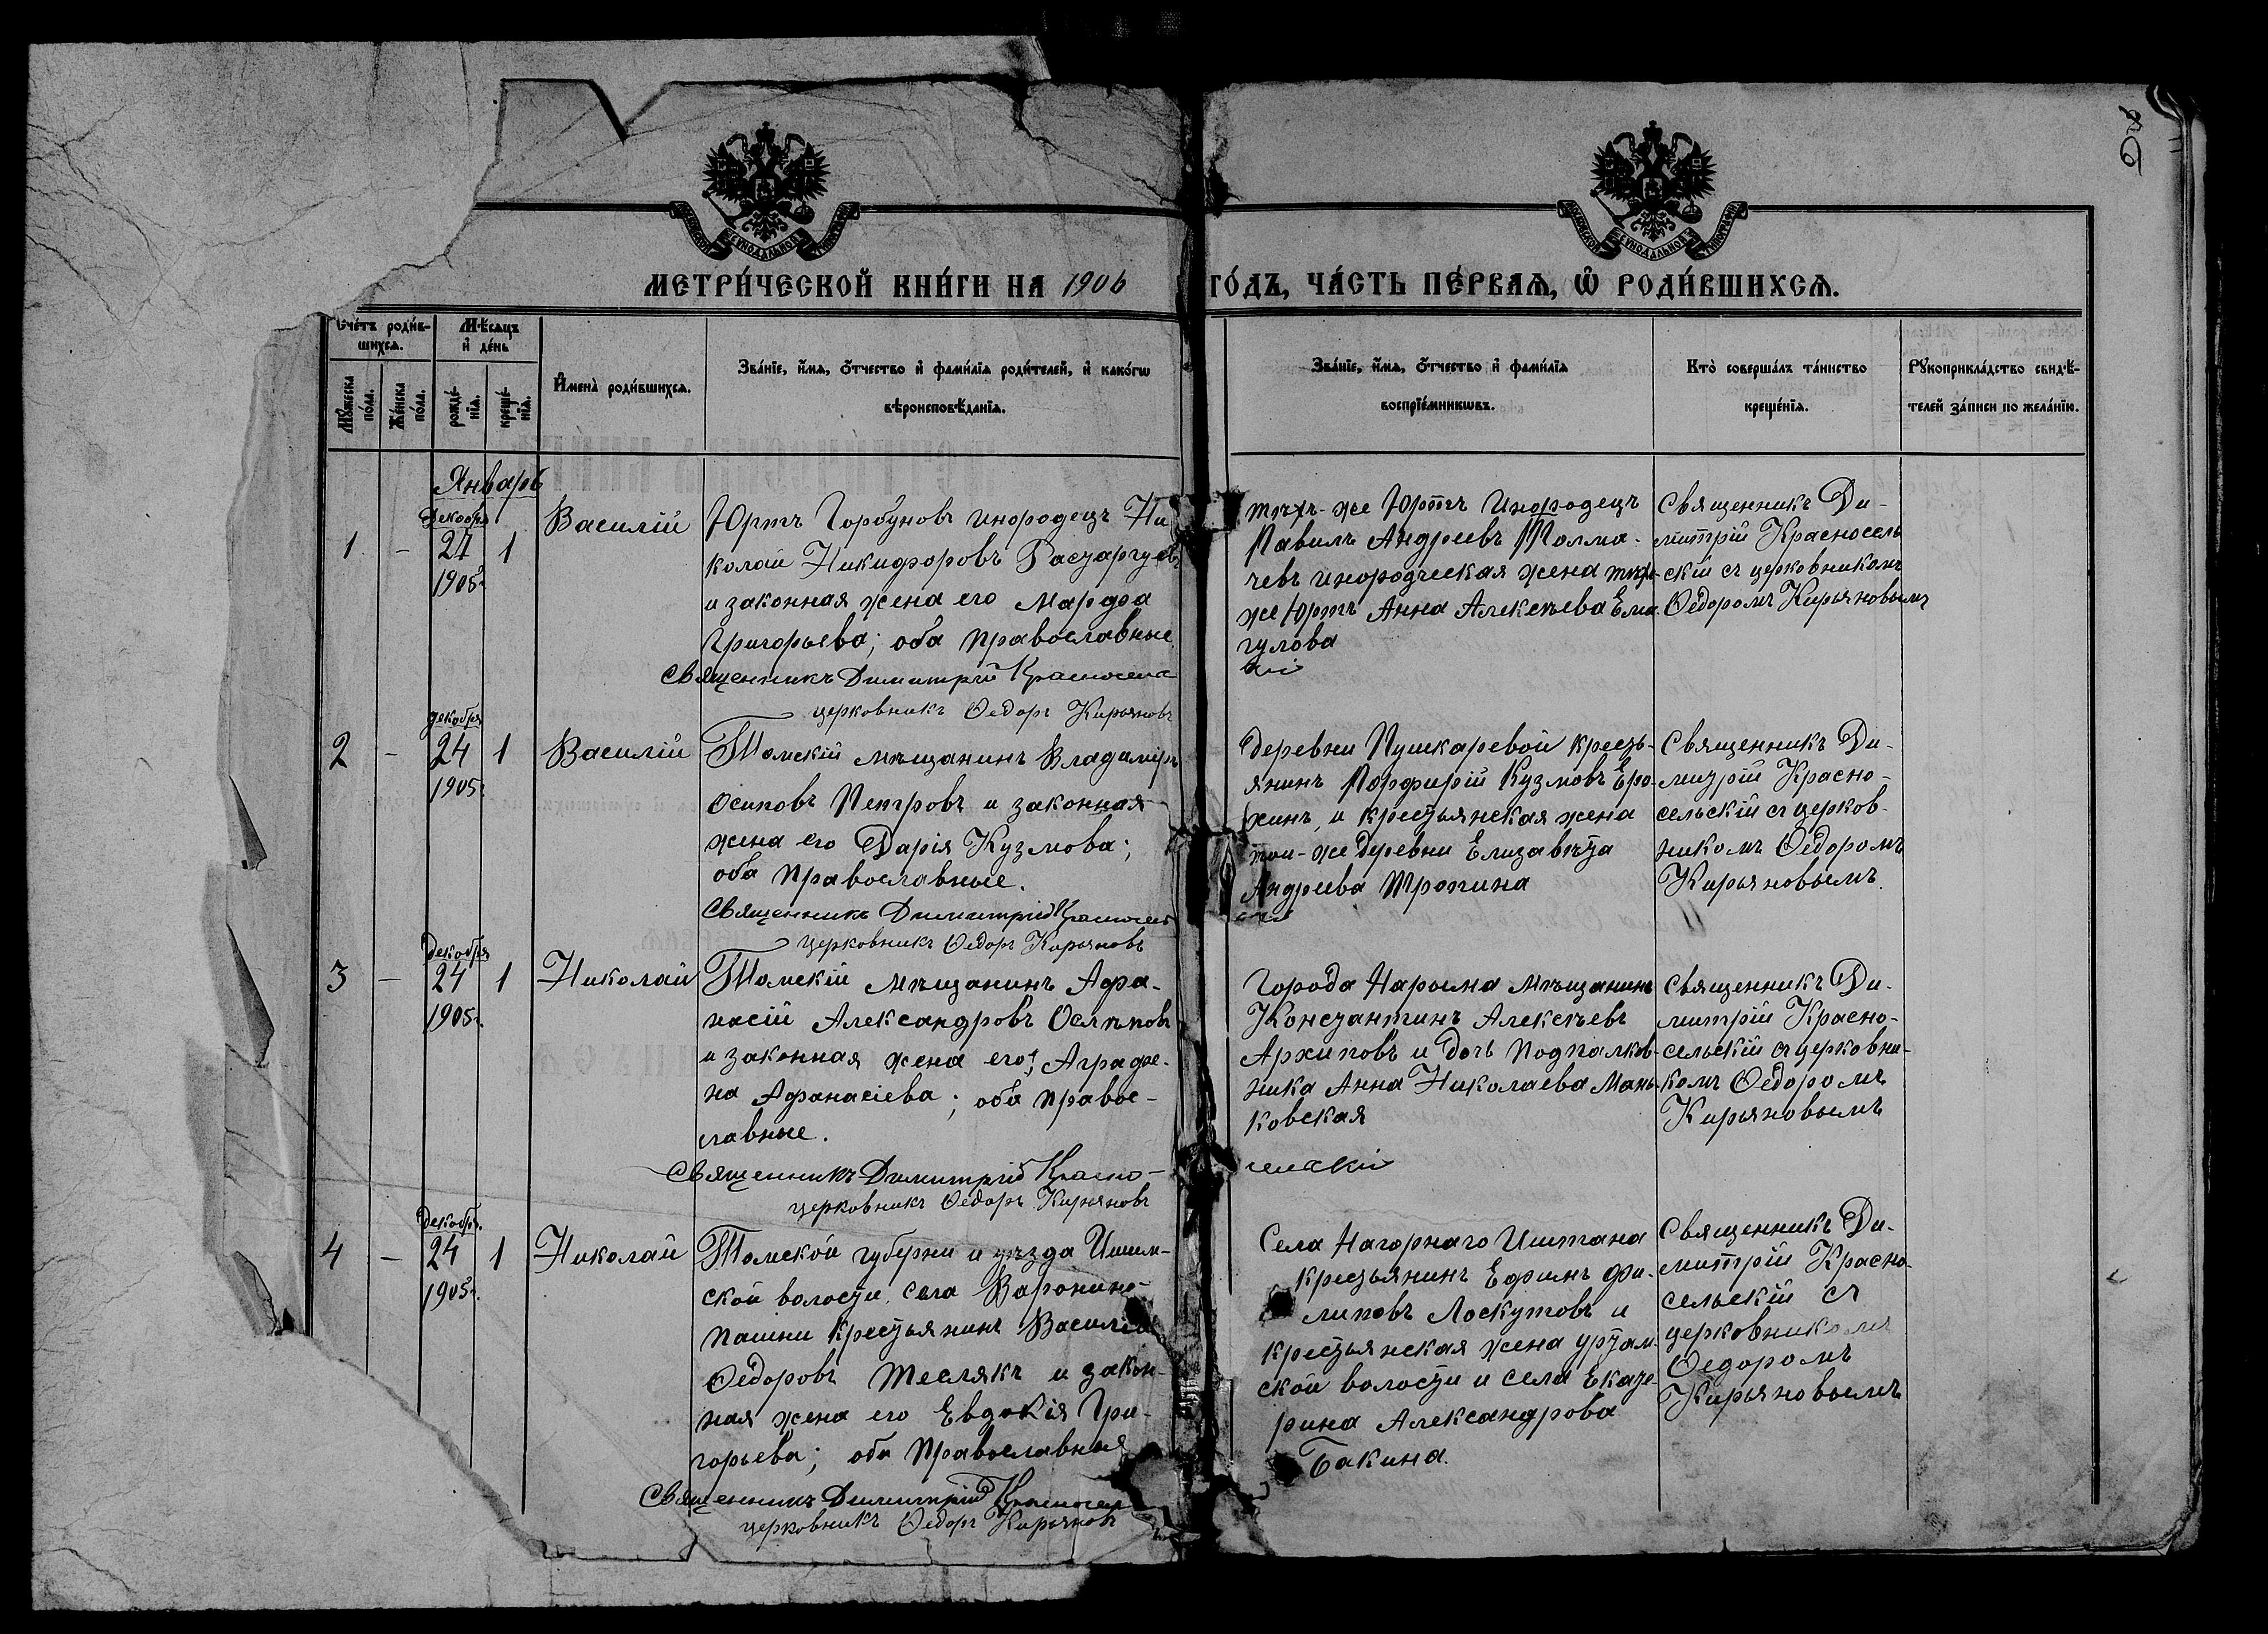 МЕТРИ́ЧЕСКОЙ КНИ́ГИ НА 1906 ГО́ДЪ, ЧА́СТЬ ПЕ́РВАѦ, Ѡ҆ РОДИ́ВШИХСѦ.
Сче́тъ роди́в-
шихсѧ.
Мꙋ́жеска
по́ла.
Же́нска
по́ла.
Мѣ́сѧцъ
и҆ де́нь
рожде́-
нїѧ.
креще́-
нїѧ.
И҆мена̀ роди́вшихсѧ.
Зва́нїе, и҆́мѧ, ѻ҆́тчество и҆ фами́лїѧ роди́телей, и҆ како́гѡ
вѣроисповѣ́данїѧ.
Зва́нїе, и҆́мѧ, ѻ҆́тчество и҆ фами́лїѧ
воспрїе́мникѡвъ.
Кто̀ соверша́лъ та́инство
креще́нїѧ.
Рꙋкоприкла́дство свидѣ́-
телей за́писи по жела́нїю.
Январь
1
-
Декабря
27
1905г.
1
Василій
Юртъ Горбуновъ инородецъ Ни
колай Никифоровъ Растаргуевъ
и законная жена его Марфа
Григорьева; оба православные
Священникъ Димитрій Красносель
церковникъ Ѳедоръ Кирьяновъ
тѣхъ-же Юртъ Инородецъ
Павелъ Андреевъ Толма-
чевъ инородческая жена тѣхъ-
же Юртъ Анна Алексѣева Ема
гулова
скій
Священникъ Ди-
митрій Красносель
скій съ церковникомъ
Ѳедоромъ Кирьяновымъ
2
-
декабря
24
1905г.
1
Василій
Томскій мѣщанинъ Владиміръ
Осиповъ Петровъ и законная
жена его Дарія Кузмова;
оба православные.
Священникъ Димитрій Красносель
церковникъ Ѳедоръ Кирьяновъ
деревни Пушкаревой кресть-
янинъ Порфирій Кузмовъ Еро-
хинъ, и крестьянская жена
той-же деревни Елизавѣта
Андреева Тропина
скій
Священникъ Ди-
митрій Красно-
сельскій съ церков-
никомъ Ѳедоромъ
Кирьяновымъ.
3
-
Декабря
24
1905г.
1
Николай
Томскій мѣщанинъ Афа-
насій Александровъ Ослповъ
и законная жена его, Аграфе-
на Афанасіева; оба правос-
лавные.
Священникъ Димитрій Красно-
церковникъ Ѳедоръ Кирьяновъ
Города Нарыма мѣщанинъ
Константинъ Алексѣевъ
Архиповъ и дочь подполков-
ника Анна Николаева Мань-
ковская
сельскій
Священникъ Ди-
митрій Красно-
сельскій съ церковни-
комъ Ѳедоромъ
Кирьяновымъ
4
-
декабря.
24
1905г.
1
Николай
Томской губерни и уѣзда Ишим-
ской волости села Вароинно-
пашни крестьянинъ Василій
Ѳедоровъ Теслякъ и закон-
ная жена его Евдокія Гри-
горьева; оба православныя
Священникъ Димитрій Красносель
церковникъ Ѳедоръ Кирьяновъ
Села Нагорнаго Иштана
крестьянинъ Ефимъ Фи-
липовъ Лоскутовъ и
крестьянская жена уртам-
ской волости и села Екате-
рина Александрова
Бакина.
Священникъ Ди-
митрій Красно-
сельскій съ
церковникомъ
Ѳедоромъ
Кирьяновымъ